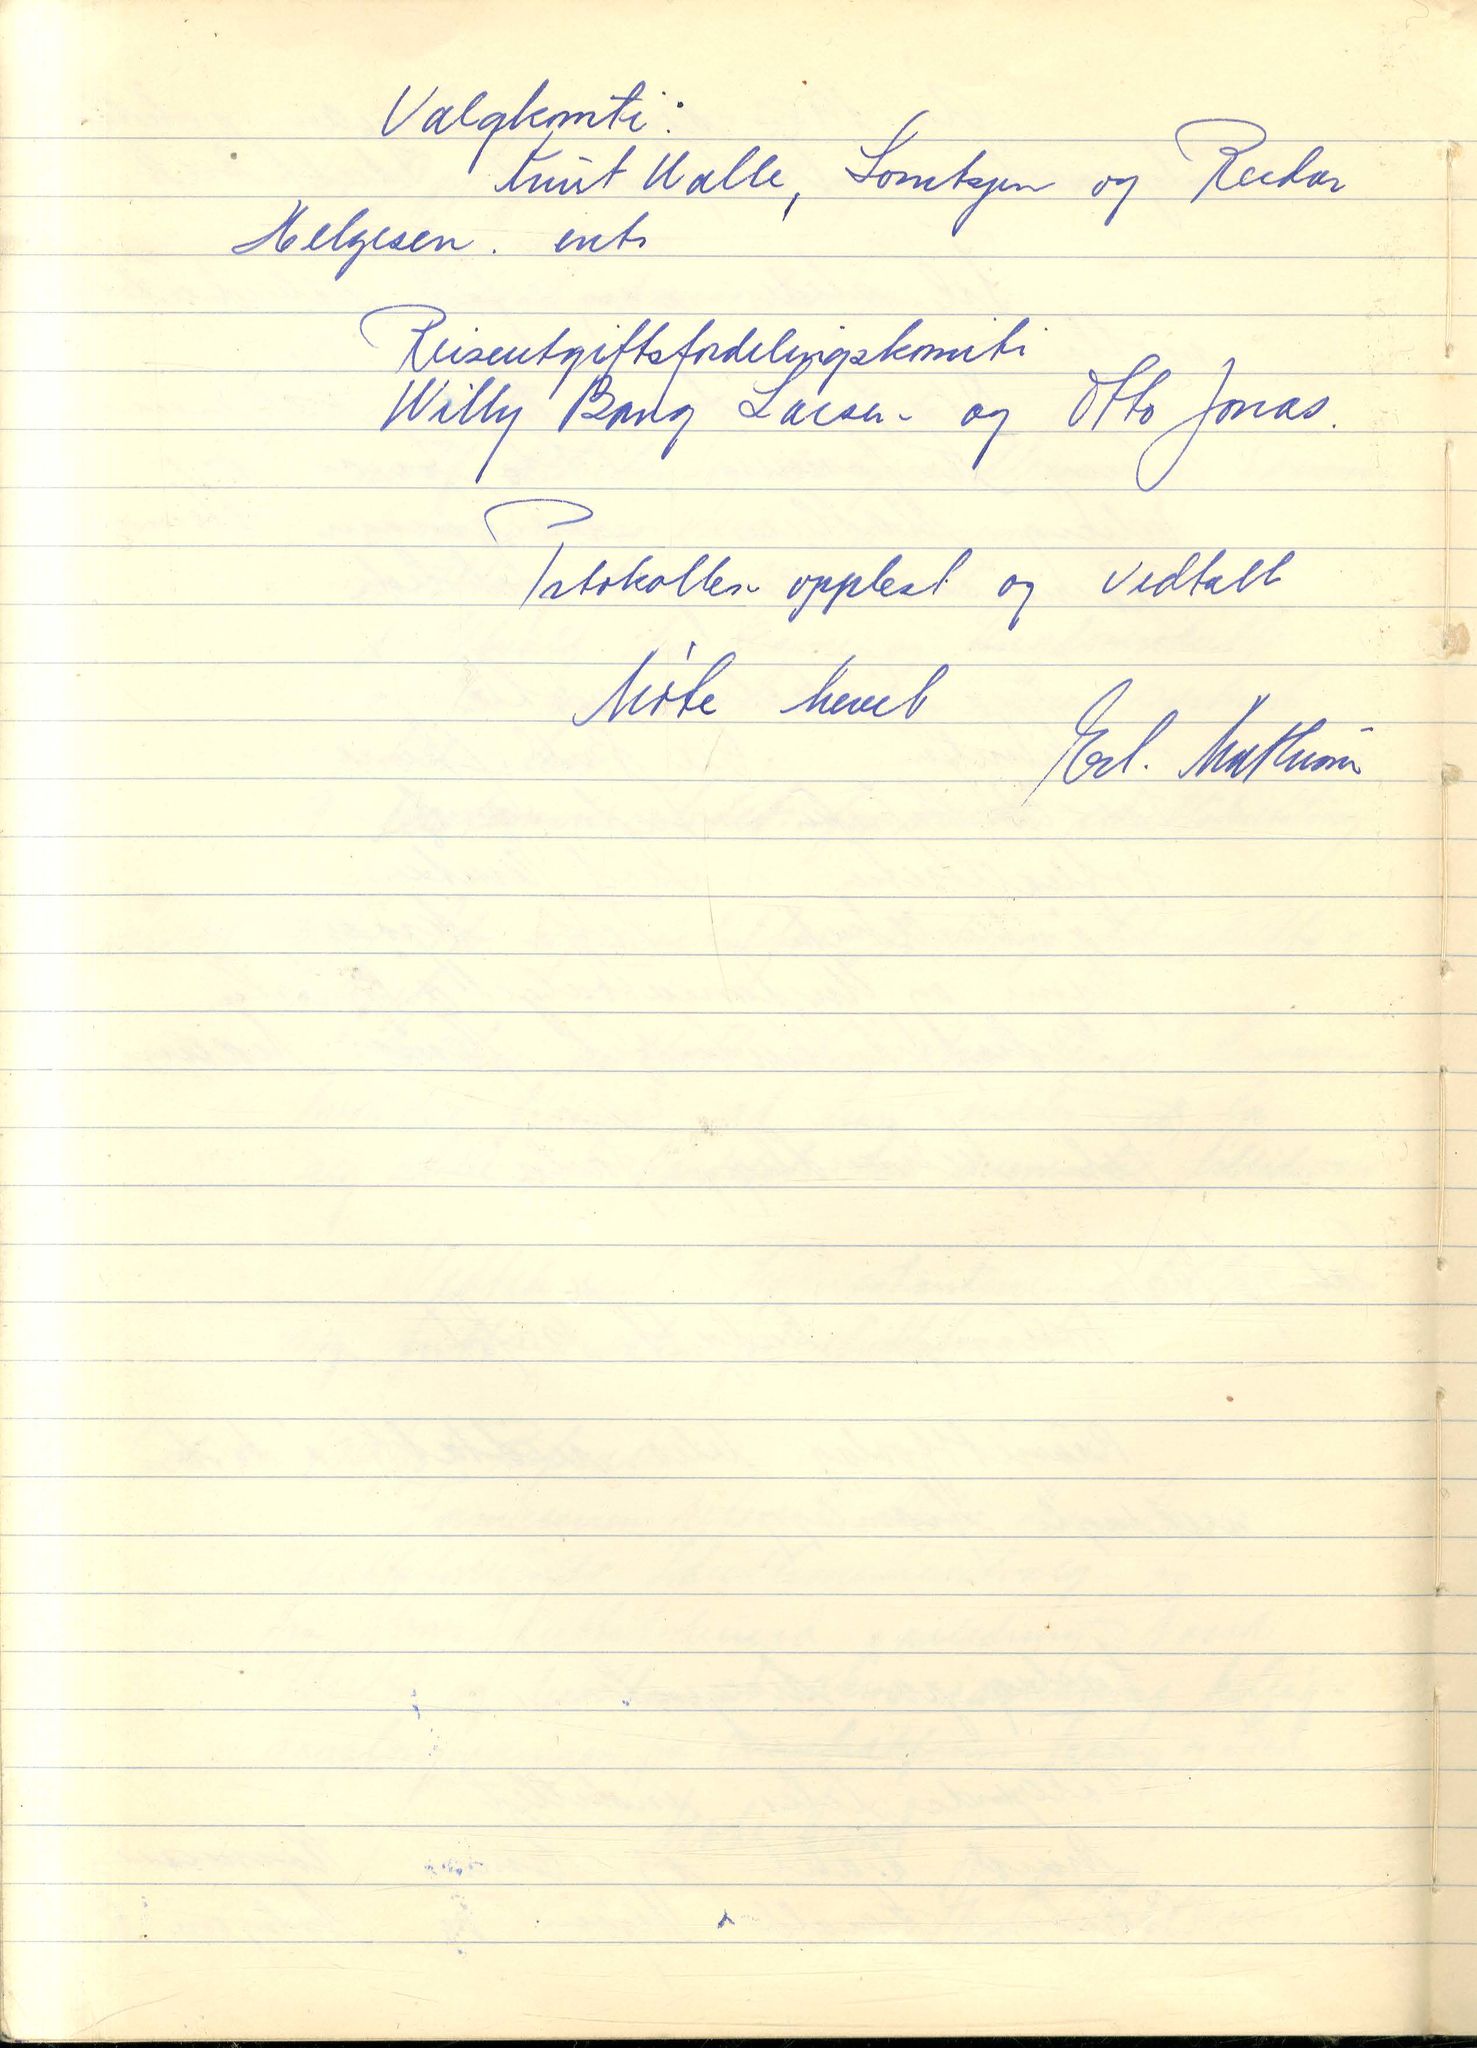 Valgkomite:
Knut Walle, og Reidar
Helgesen. ent.
Reiseutgiftsfordelingskomite
Willy Bang Larsen og Otto Jonas.
Protokollen opplest og vedtatt
Møte hevet
Erl.